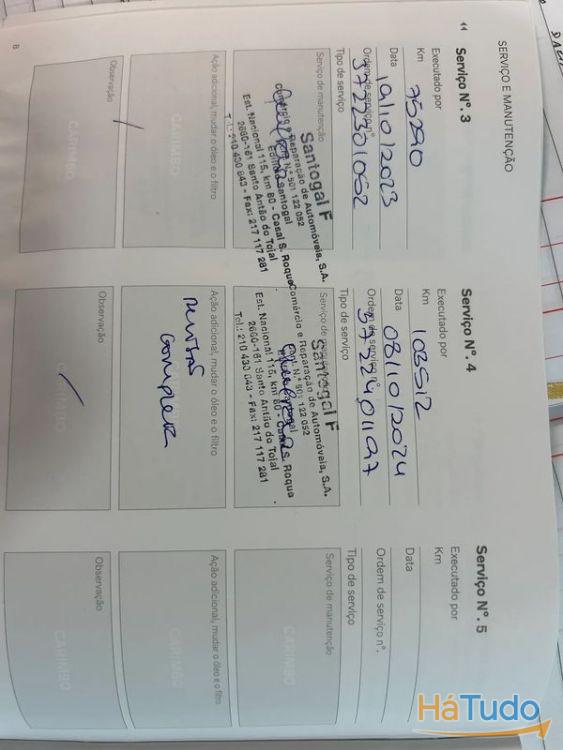 SERVIÇO E MANUTENÇÃO
Serviço Nº. 3
Executado por
Km 75290
Data 19/10/2023
Ordem de serviço nº. 3722301052
Tipo de serviço
Serviço de manutenção
Santogal F
Comércio e Reparação de Automóveis, S.A.
Cont. N.º 501 122 052
Est. Nacional 115, km 80 - Casal S. Roque
2660-161 Santo Antão do Tojal
Tel.: 210 430 643 - Fax: 217 117 281
Ação adicional, mudar o óleo e o filtro
CARIMBO
Observação
/
CARIMBO
Serviço Nº. 4
Executado por
Km 103512
Data 08/10/2024
Ordem de serviço nº. 3722401197
Tipo de serviço
Serviço de manutenção
Santogal F
Comércio e Reparação de Automóveis, S.A.
Cont. N.º 501 122 052
Est. Nacional 115, km 80 - Casal S. Roque
2660-161 Santo Antão do Tojal
Tel.: 210 430 643 - Fax: 217 117 281
Ação adicional, mudar o óleo e o filtro
Completa
Observação
/
CARIMBO
Serviço Nº. 5
Executado por
Km
Data
Ordem de serviço nº.
Tipo de serviço
Serviço de manutenção
CARIMBO
Ação adicional, mudar o óleo e o filtro
CARIMBO
Observação
CARIMBO
8
HáTudo